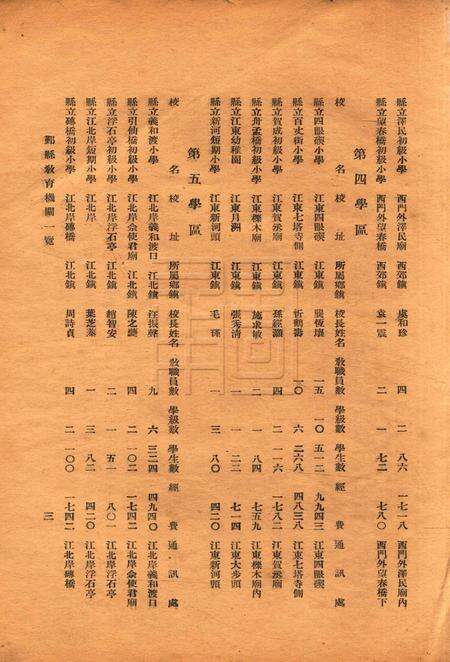 縣立澤民初級小學 西門外澤民廟 西郊鎮 盧和珍 四 二 八六 一七一八 西門外澤民廟內
縣立望春橋初級小學 西門外望春橋 西郊鎮 袁一震 二 一 七二 七八〇 西門外望春橋下
第四學區
校名 校址 所屬鄉鎮 校長姓名 教職員數 學級數 學生數 經費 通訊處
縣立四眼碶小學 江東四眼碶 江東鎮 恆壤 一五 一〇 五一二 九九四三 江東四眼碶
縣立百丈街小學 江東七塔寺側 江東鎮 忻鶴壽 一〇 六 二六八 四八三八 江東七塔寺側
縣立賀成初級小學 江東賀丞廟 江東鎮 孫經灝 四 二 一一六 一七八二 江東賀丞廟
縣立舟孟橋初級小學 江東櫟木廟 江東鎮 施求敏 二 一 八四 七五九 江東櫟木廟內
縣立江東幼稚園 江東月洲 江東鎮 張秀清 二 一 二三 七一四 江東大步頭
縣立新河短期小學 江東新河頭 江東鎮 毛 一 三 八〇 四二〇 江東新河頭
第五學區
校名 校址 所屬鄉鎮 校長姓名 教職員數 學級數 學生數 經費 通訊處
縣立義和渡小學 江北岸義和渡口 江北鎮 汪振 九 六 三二四 四九四〇 江北岸義和渡口
縣立引仙橋初級小學 江北岸佘使君廟 江北鎮 陳之 四 二 一〇二 一七四二 江北岸佘使君廟
縣立浮石亭初級小學 江北岸浮石亭 江北鎮 錧智安 二 一 五一 八〇一 江北岸浮石亭
縣立江北岸短期小學 江北岸 江北鎮 葉芝蓁 一 三 八二 四二〇 江北岸浮石亭
縣立磚橋初級小學 江北岸磚橋 江北鎮 周詩貞 四 二 一〇〇 一七四二 江北岸磚橋
鄞縣教育機關一覽
三